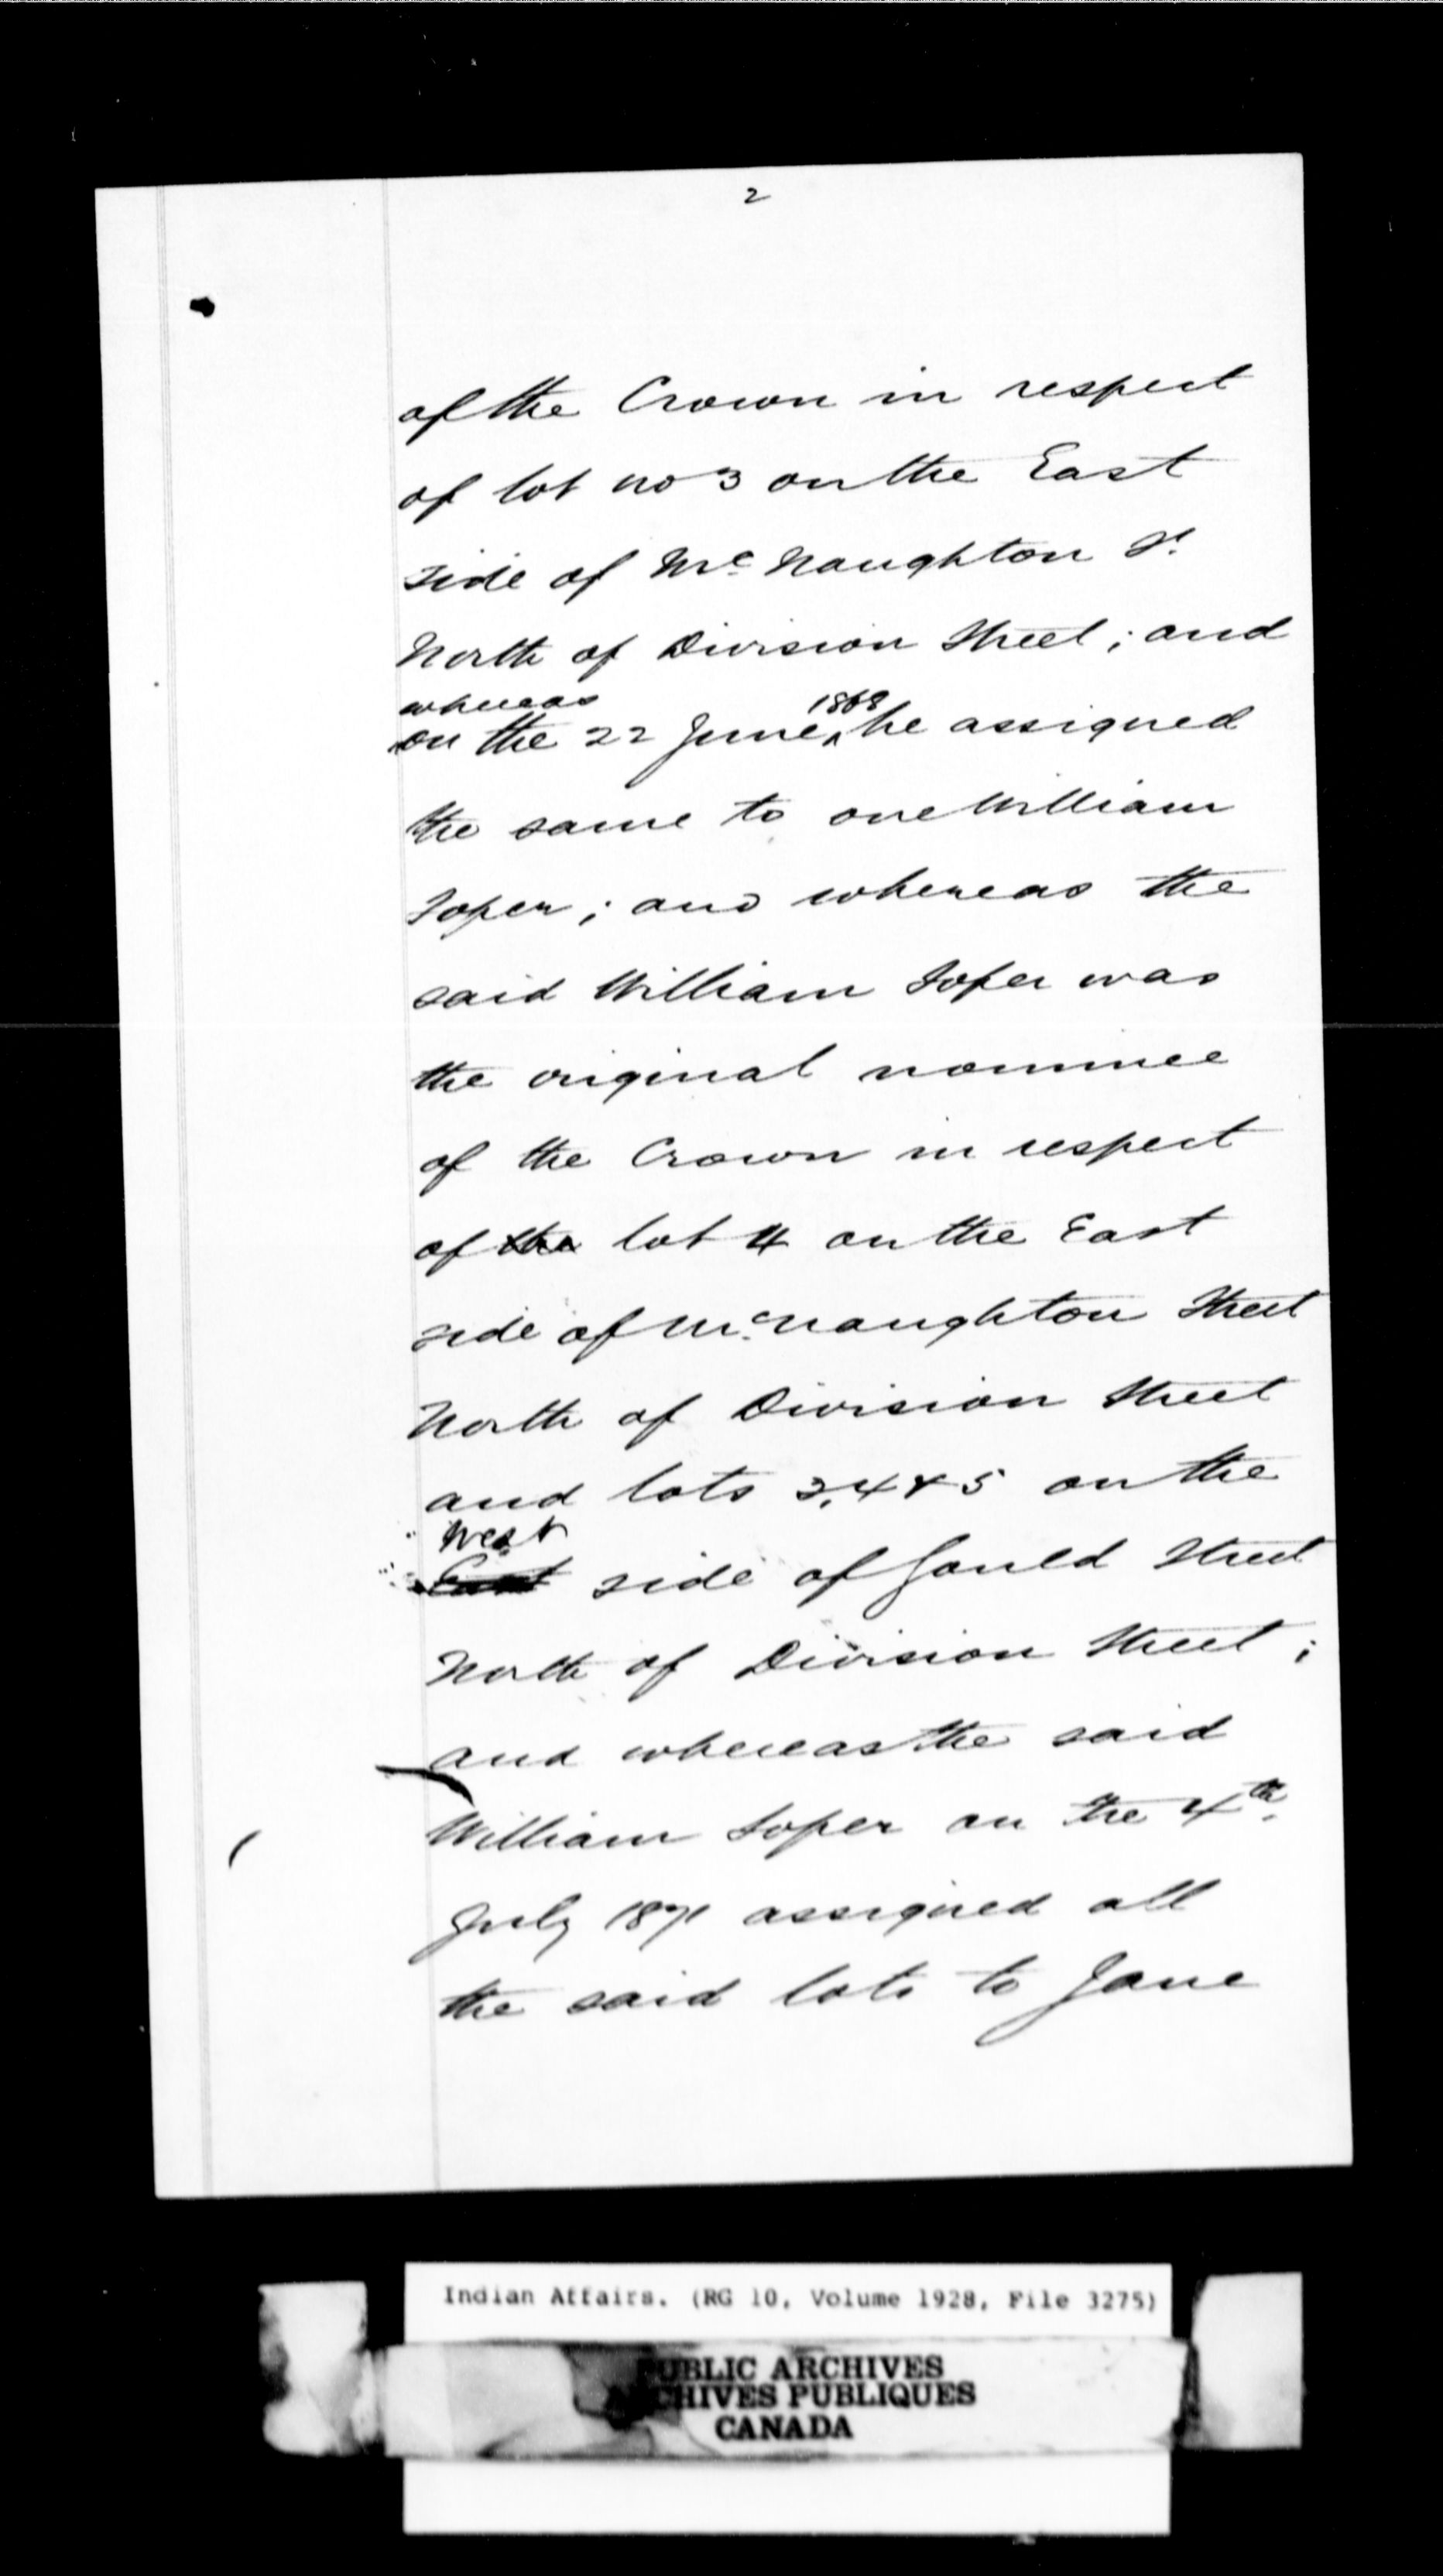 2
of the Crown in respect
of lot no 3 on the East
side of Mc Naughton St
North of Division Street; and
whereas 1868
on the 22 June, he assigned
the same to one William
Soper; and whereas the
said William Soper was
the original nominee
of the Crown in respect
of the lot 4 on the East
side of McNaughton Street
North of Division Street
and lots 3, 4 & 5 on the
West
East side of Gould Street
North of Division Street;
and whereas the said
William Soper on the 4th
July 1871 assigned all
the said lots to Jane
Indian Affairs. (RG 10, Volume 1928, File 3275)
PUBLIC ARCHIVES
ARCHIVES PUBLIQUES
CANADA